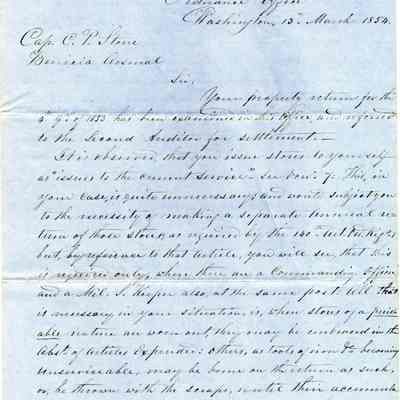 Ordnance Office
Washington, 13th March 1854.
Cap. C. P. Stone
Benicia Arsenal
Sir,
Your property return for the
4th qr of 1853 has been examined in this Office, and referred
to the Second Auditor for settlement.—
It is observed that you issue stores to yourself
as "issues to the current service" see Vou. 7: This, in
your case, is quite unnecessary, and would subject you
to the necessity of making a separate annual re=
turn of those stores, as required by the 140th Art.
but, by reference to that article, you will see, that this
is required only, where there are a Commanding Officer
and a Mil. S. Keeper also, at the same post. All that
is necessary in your situation, is, when stores of a perish=
able nature are worn out, they may be embraced in the
abst. of articles Expended: others, as tools of iron &c becoming
unserviceable, may be borne on the return as such,
or, be thrown with the scraps, until their accumula